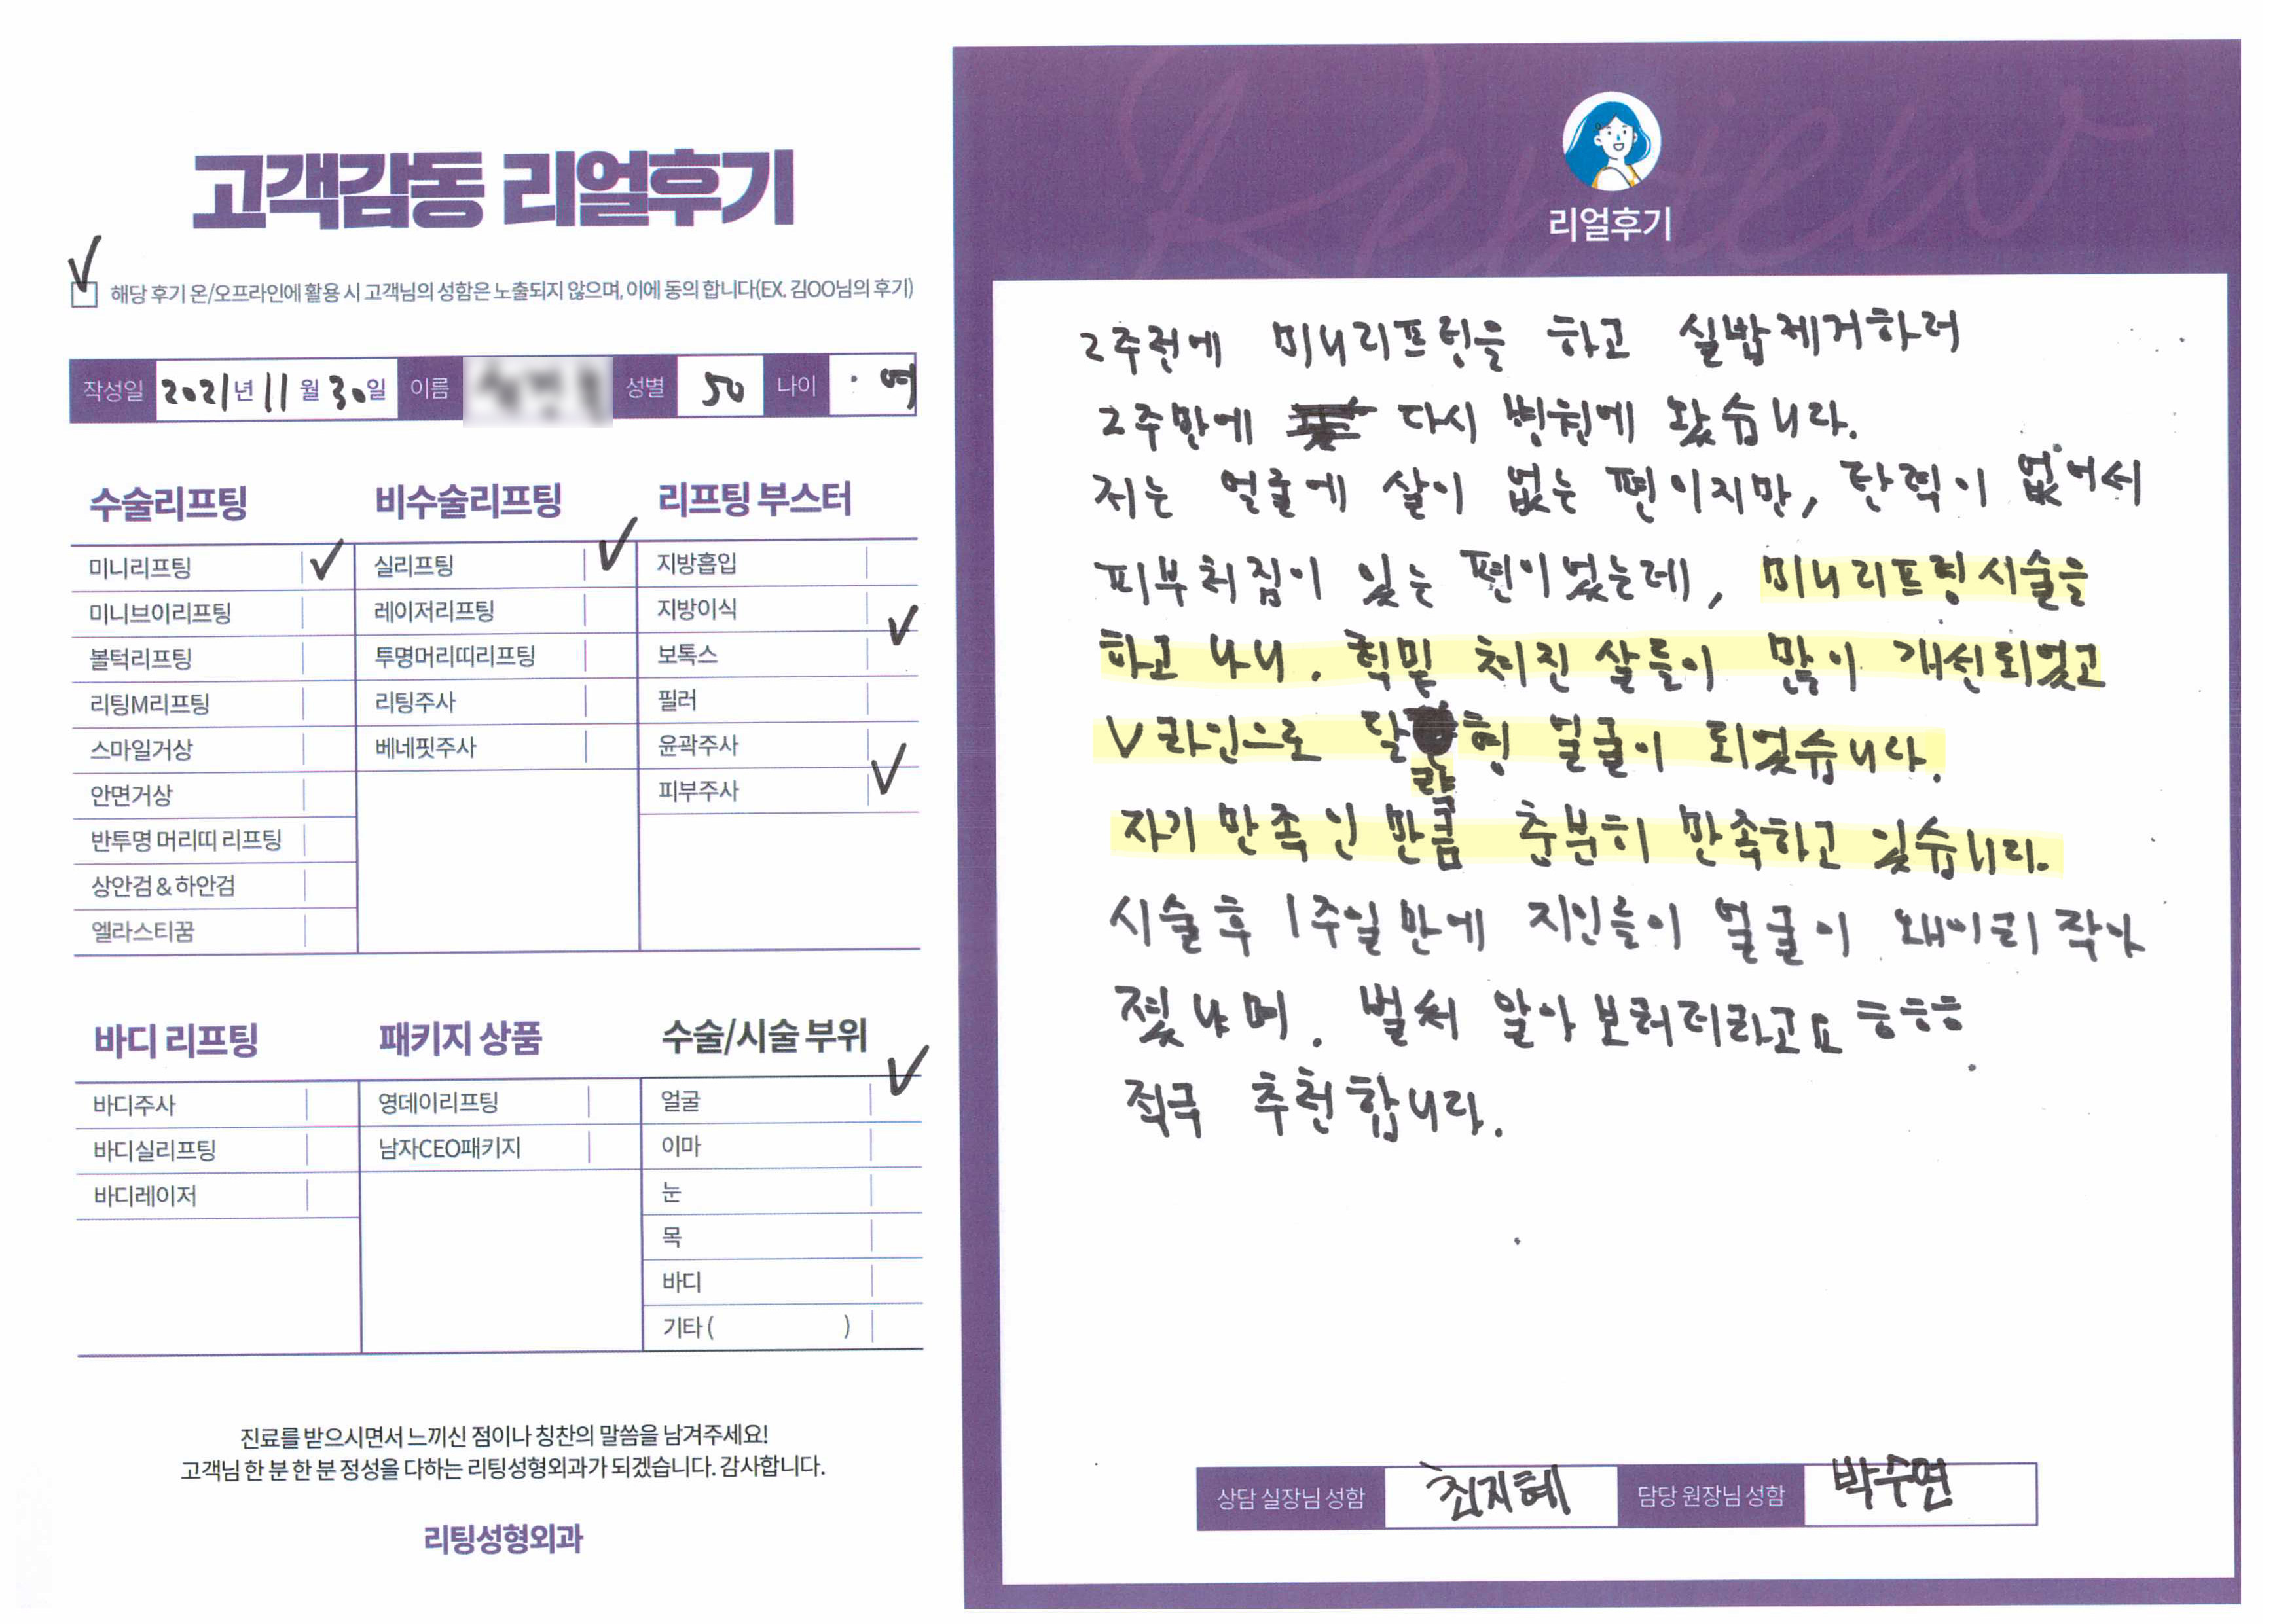 고객감동 리얼후기
해당 후기 온/오프라인에 활용 시 고객님의 성함은 노출되지 않으며, 이에 동의 합니다(EX. 김OO님의 후기)
작성일 2021년 11월 30일 이름 성별 50 나이 여
수술리프팅
미니리프팅
미니브이리프팅
볼턱리프팅
리팅M리프팅
스마일거상
안면거상
반투명 머리띠 리프팅
상안검 & 하안검
엘라스티꿈
비수술리프팅
실리프팅
레이저리프팅
투명머리띠리프팅
리팅주사
베네핏주사
리프팅 부스터
지방흡입
지방이식
보톡스
필러
윤곽주사
피부주사
바디 리프팅
바디주사
바디실리프팅
바디레이저
패키지 상품
영데이리프팅
남자CEO패키지
수술/시술 부위
얼굴
이마
눈
목
바디
기타 ( )
진료를 받으시면서 느끼신 점이나 칭찬의 말씀을 남겨주세요!
고객님 한 분 한 분 정성을 다하는 리팅성형외과가 되겠습니다. 감사합니다.
리팅성형외과
Review
리얼후기
2주전에 미니리프팅을 하고 실밥제거하러
2주만에 다시 병원에 왔습니다.
저는 얼굴에 살이 없는 편이지만, 탄력이 없어서
피부처짐이 있는 편이었는데, 미니리프팅시술을
하고 나니. 턱밑 처진 살들이 많이 개선되었고
V라인으로 달걀형 얼굴이 되었습니다.
자기 만족인 만큼 충분히 만족하고 있습니다.
시술 후 1주일 만에 지인들이 얼굴이 왜이리 작아
졌냐며. 벌써 알아 보러더라고요 ㅎㅎㅎ
적극 추천합니다.
상담 실장님 성함 최지혜 담당 원장님 성함 박수연